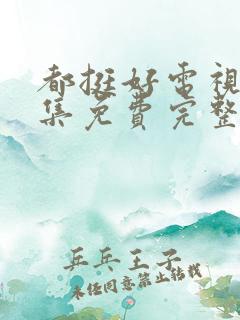 都挺好電視
集免費完整
乒乓王子
未经同意禁止转载